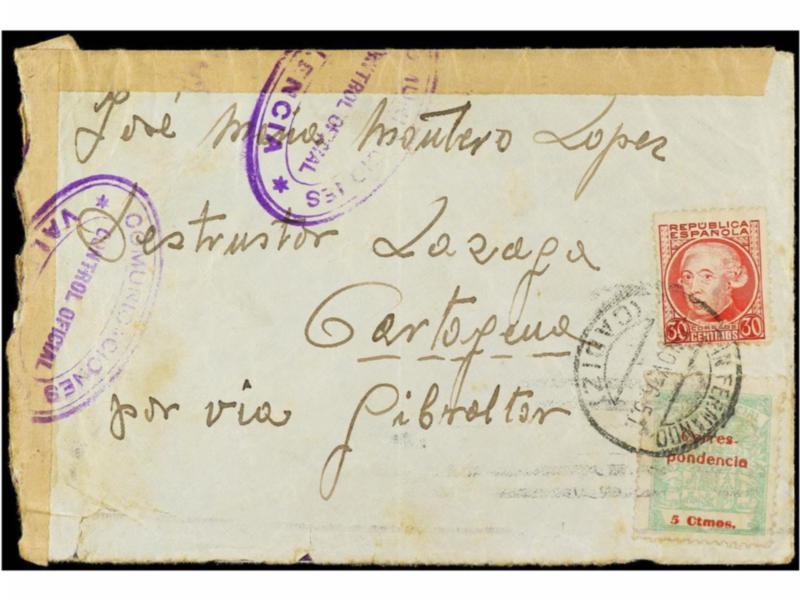 COMUNICACIONES
VALENCIA
CONTROL OFICIAL
José María Montero Lopez
Destrustor Lazaga
Cartagena
por via Gibraltar
COMUNICACIONES
VAL
CONTROL OFICIAL
REPÚBLICA
ESPAÑOLA
30 CORREOS 30
CENTIMOS
SAN FERNANDO
(CADIZ)
Corres-
pondencia
5 Ctmos.